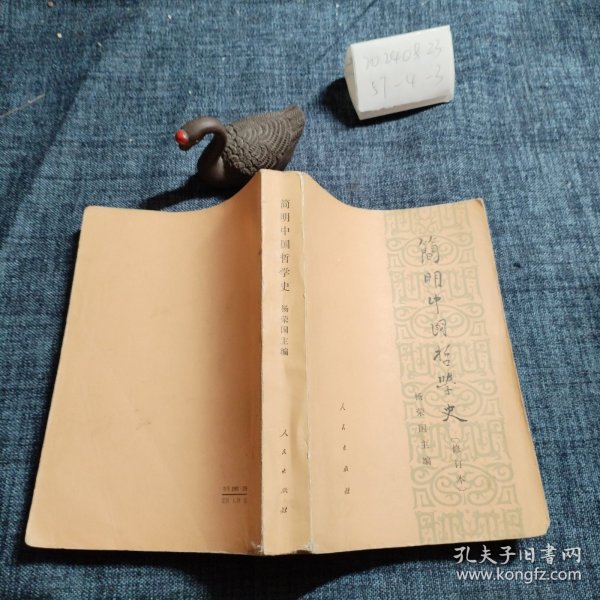 20240823
57-4-3
简明中国哲学史
杨荣国主编
人民出版社
简明中国哲学史
(修订本)
杨荣国主编
人民出版社
孔夫子旧书网
www.kongfz.com